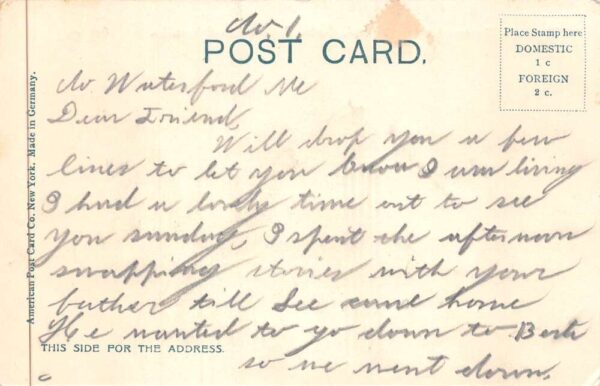 No. 1.
POST CARD.
Place Stamp here
DOMESTIC
1 c
FOREIGN
2 c.
American Post Card Co. New York. Made in Germany.
No Waterford Me
Dear Friend,
Will drop you a few
lines to let you know I am living
I had a lovely time out to see
you sunday, I spent the afternoon
swapping stories with your
father till Lee came home
He wanted to go down to Berts
THIS SIDE FOR THE ADDRESS.
so we went down.